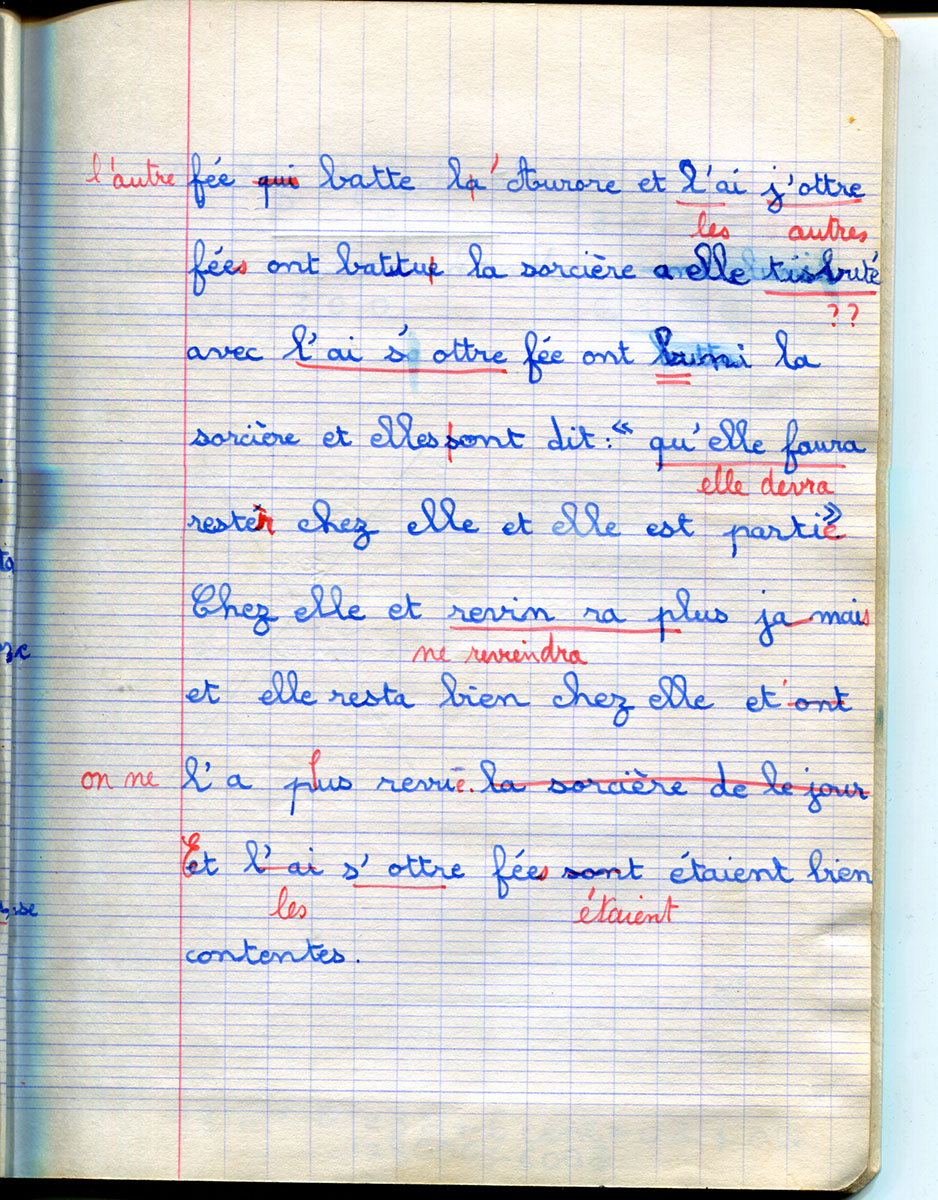 l'autre fée qui batte l'Aurore et l'ai j'ottre
les autres
fées ont battu la sorcière a elle tisbuté
??
avec l'ai s'ottre fée ont buni la
sorcière et elles ont dit : « qu'elle faura
elle devra
rester chez elle et elle est partie »
Chez elle et revin ra plus ja mais
ne reviendra
et elle resta bien chez elle et ont
on ne l'a plus revue. la sorcière de le jour
Et l'ai s'ottre fées sont étaient bien
les étaient
contentes.
ta
zc
sse